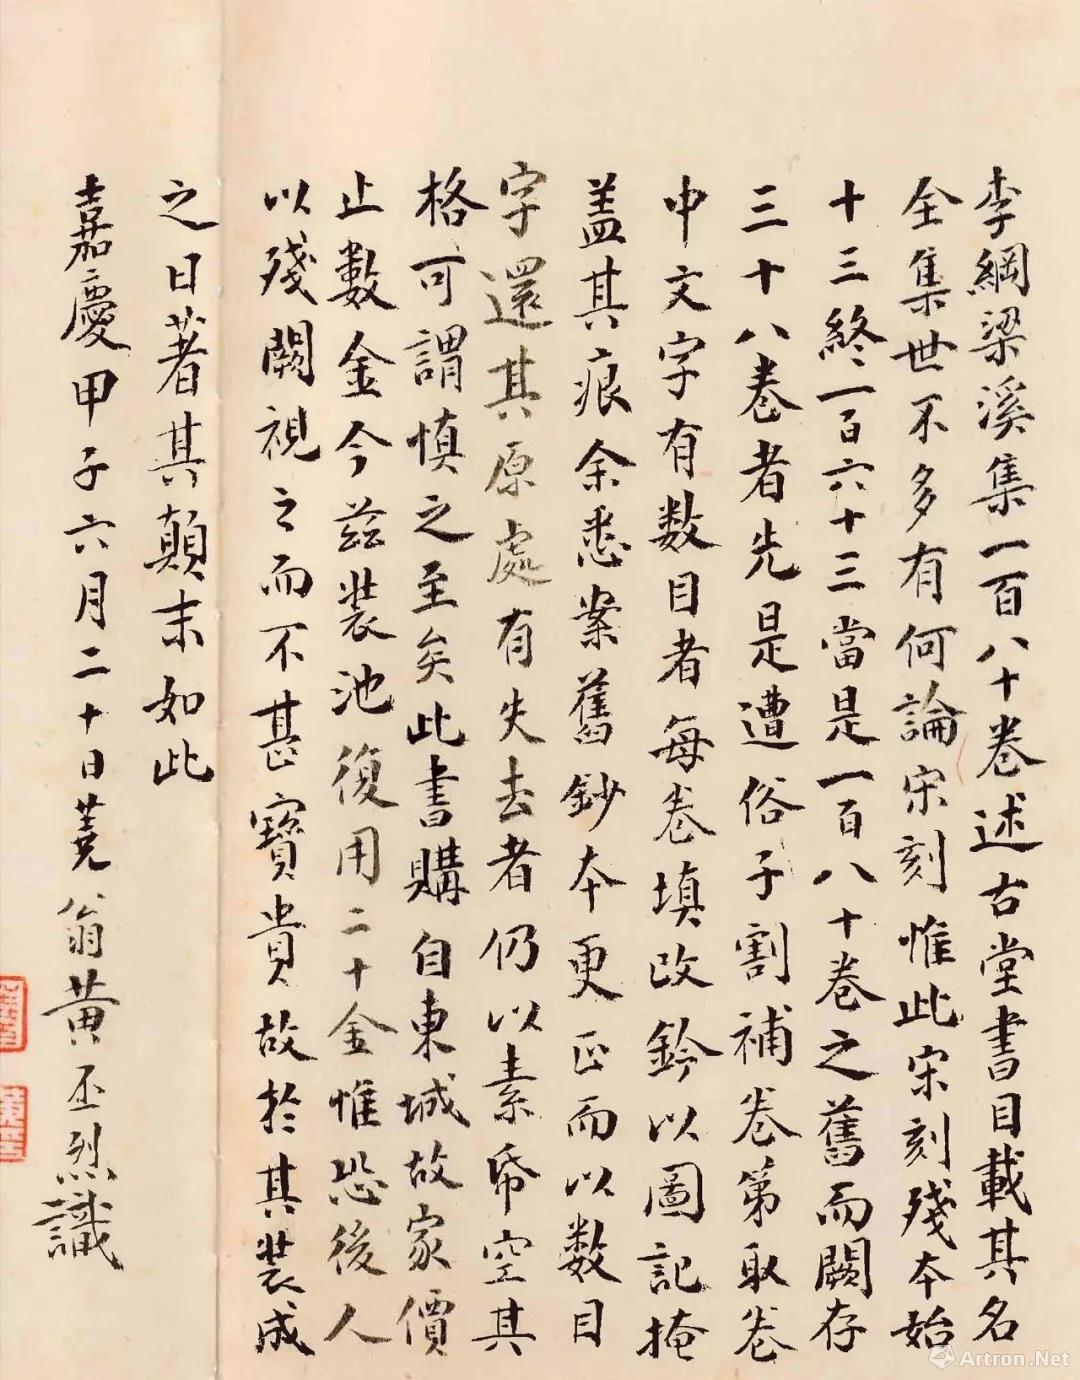 李綱梁溪集一百八十卷述古堂書目載其名
全集世不多有何論宋刻惟此宋刻殘本始
十三終一百六十三當是一百八十卷之舊而闕存
三十八卷者先是遭俗子割補卷第取卷
中文字有数目者每卷填改鈐以圖記掩
盖其痕余悉案舊鈔本更正而以数目
字還其原處有失去者仍以素帋空其
格可謂慎之至矣此書購自東城故家價
止數金今兹裝池復用二十金惟恐後人
以殘闕視之而不甚寶貴故於其裝成
之日著其顛末如此
嘉慶甲子六月二十日蕘翁黄丕烈識
Artron.Net